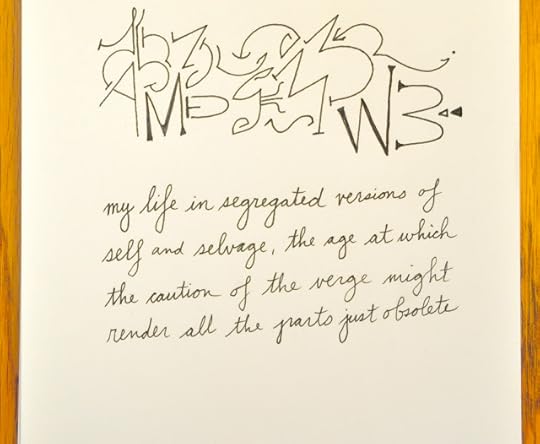 my life in segregated versions of
self and selvage, the age at which
the caution of the verge might
render all the parts just obsolete